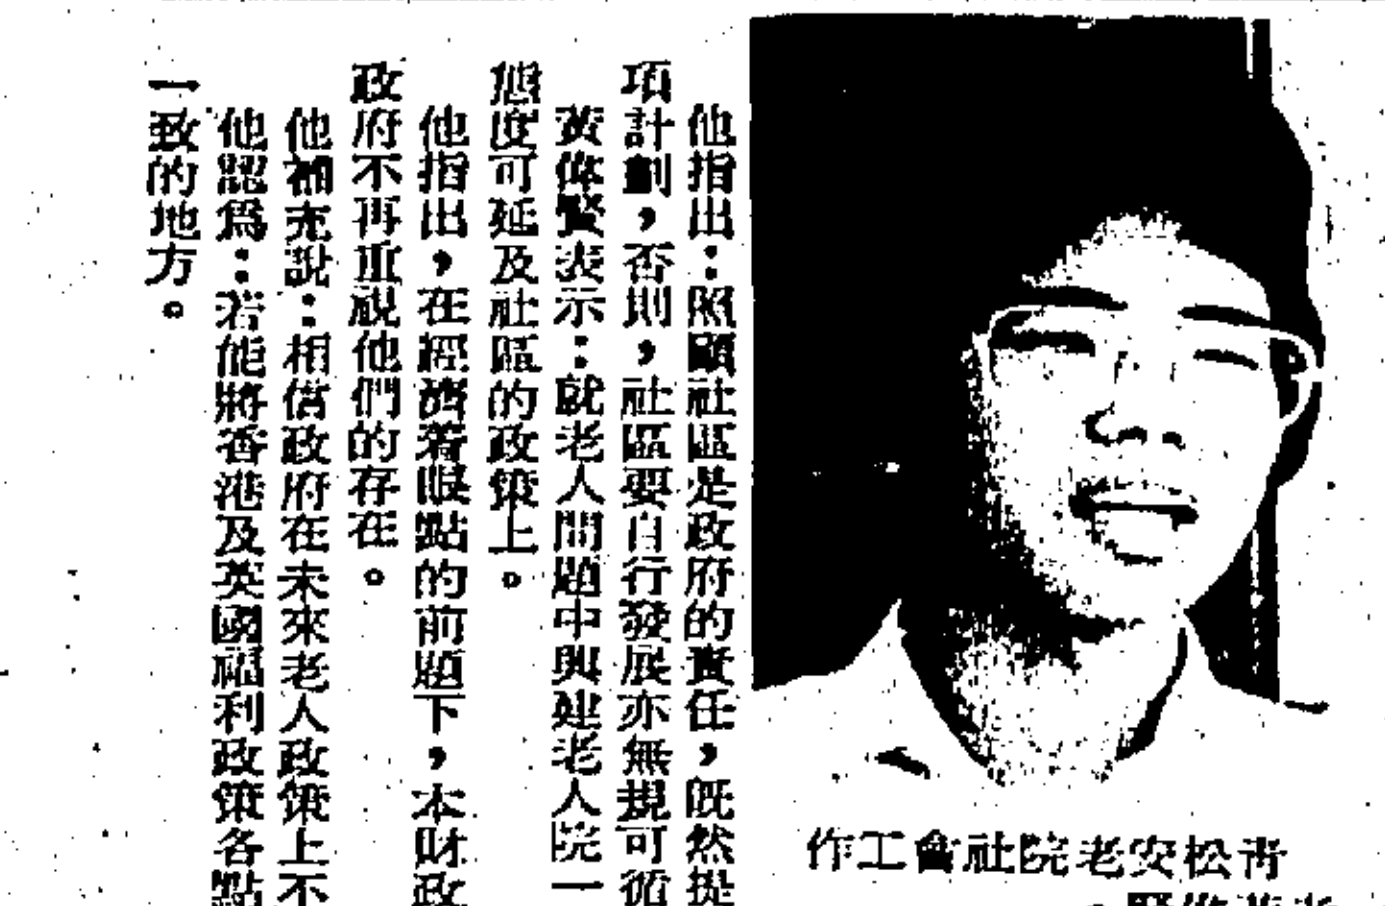 他指出：照顧社區是政府的責任，既然提
項計劃，否則，社區要自行發展亦無規可循
黃偉賢表示：就老人問題中興建老人院一
態度可延及社區的政策上。
他指出，在經濟着眼點的前題下，本財政
政府不再重視他們的存在。
他補充說：相信政府在未來老人政策上不
他認爲：若能將香港及英國福利政策各點
一致的地方。
青松安老院社會工作